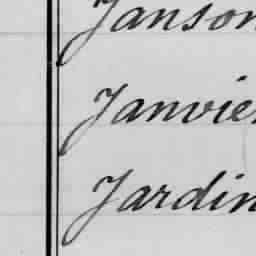 Janson
Janvier
Jardin